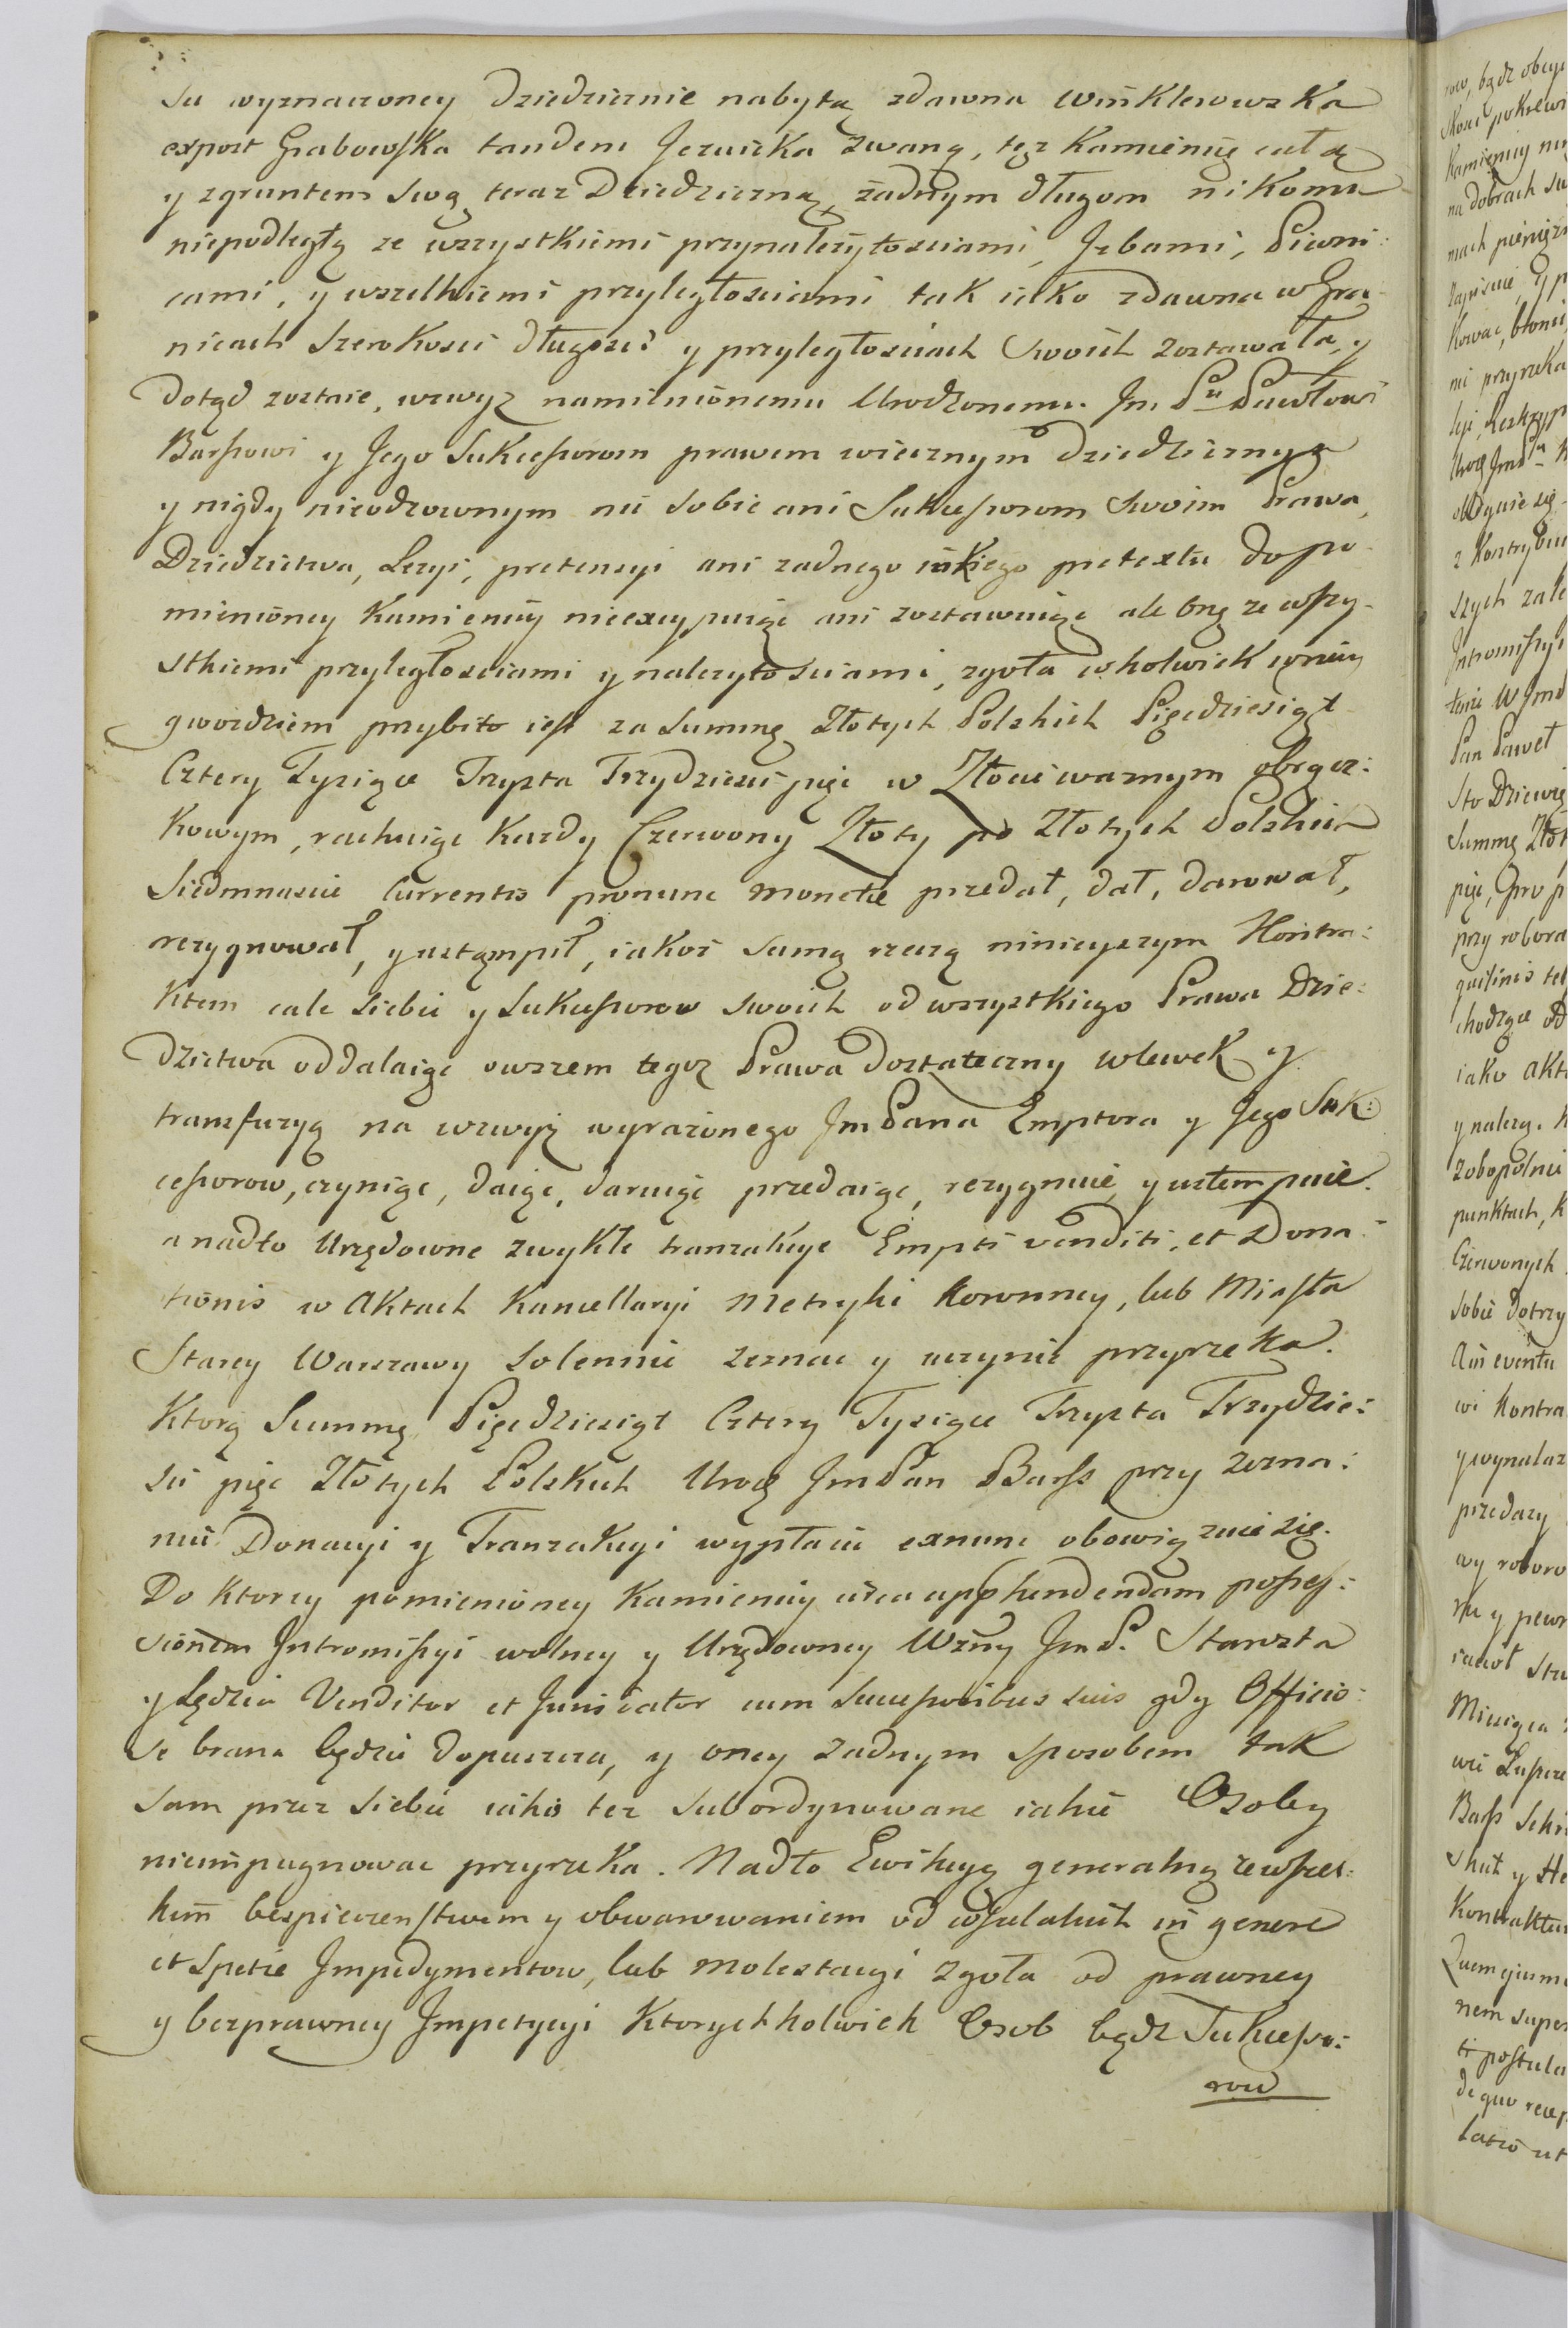 su wyznaczoney Dziedzicznie nabytą zdawna Winklerowska
expost Grabowska tandem Jezuicka zwaną, tęz Kamienię całą
y zgruntem swą teraz Dziedziczną, żadnym długom nikomu
niepodległą ze wszystkiemi przynależytosciami, Jzbami, Piwni:
cami, y wszelkiemi przyległosciami tak iako zdawna w Gra-
nicach Szerokosci Długosci y przyległosciach swoich zostawała, y
Dotąd zostaie, wzwyz namienionemu Urodzonemu Jm Pu Pawłowi
Barssowi y Jego Sukcessorom prawem wiecznym Dziedzicznym
y nigdy nieodzownym nie sobie ani Sukcessorom swoim Prawa,
Dziedzictwa, Lezyi, pretensyi ani zadnego iakiego pretextu do po-
mienioney Kamienicy nieexcypuiąc ani zostawuiąc ale oną ze wszy-
stkiemi przyległosciami y nalezytosciami, zgoła cokolwiek wniey
gwozdziem przybito iest za Summę Złotych Polskich Pięcdziesiąt
Cztery Tysiące Trzysta Trzydziesci pięc w Złocie waznym obrącz:
kowym, rachuiąc Kazdy Czerwony Złoty po Złotych Polskich
Siedmnascie Currentis pronunc monetæ przedał, dał, darował,
rezygnował, y ustąmpił, iakoż samą rzeczą ninieyszym Kontra:
ktem cale siebie y Sukcessorow swoich od wszystkiego Prawa Dzie:
dzictwa oddalaiąc owszem tegoz Prawa Dostateczny wlewek y
transfuzyą na wzwyż wyrażonego Jm Pana Emptora y Jego Suk:
cessorow, czyniąc, daiąc, daruiąc przedaiąc, rezygnuie, y ustempuie.
a nadto Urzędowne zwykłe tranzakcye Empti venditi, et Dona-
tionis w Aktach Kancellaryi Metryki Koronney, lub Miasta
Starey Warszawy Solennie zeznac y uczynic przyrzeka.
Ktorą Summę Pięcdziesiąt Cztery Tysiące Trzysta Trzydzie:
sci pięc Złotych Polskich Urodz Jm Pan Barss przy zezna:
niu Donacyi y Tranzakcyi wypłacic exnunc obowiązuie się.
Do Ktorey pomienioney Kamienicy circa apphendendam posses:
sionem Jntromissyi wolney y Urzędowney Wżny Jm P. Starosta
y Sędzia Venditor et Junicator cum successoribus suis gdy Officio:
se brana będzie dopuszcza, y oney zadnym sposobem tak
sam przez siebie iako tez subordynowane iakie Osoby
nieimpugnowac przyrzeka. Nadto Ewikcyą generalną zewszel:
kim bespieczenstwem y obwarowaniem od wszelakich in genere
et spetie Jmpedymentow, lub molestacyi zgoła od prawney
y bezprawney Jmpetycyi Ktorychkolwiek Osob bądz Sukcesso:
row